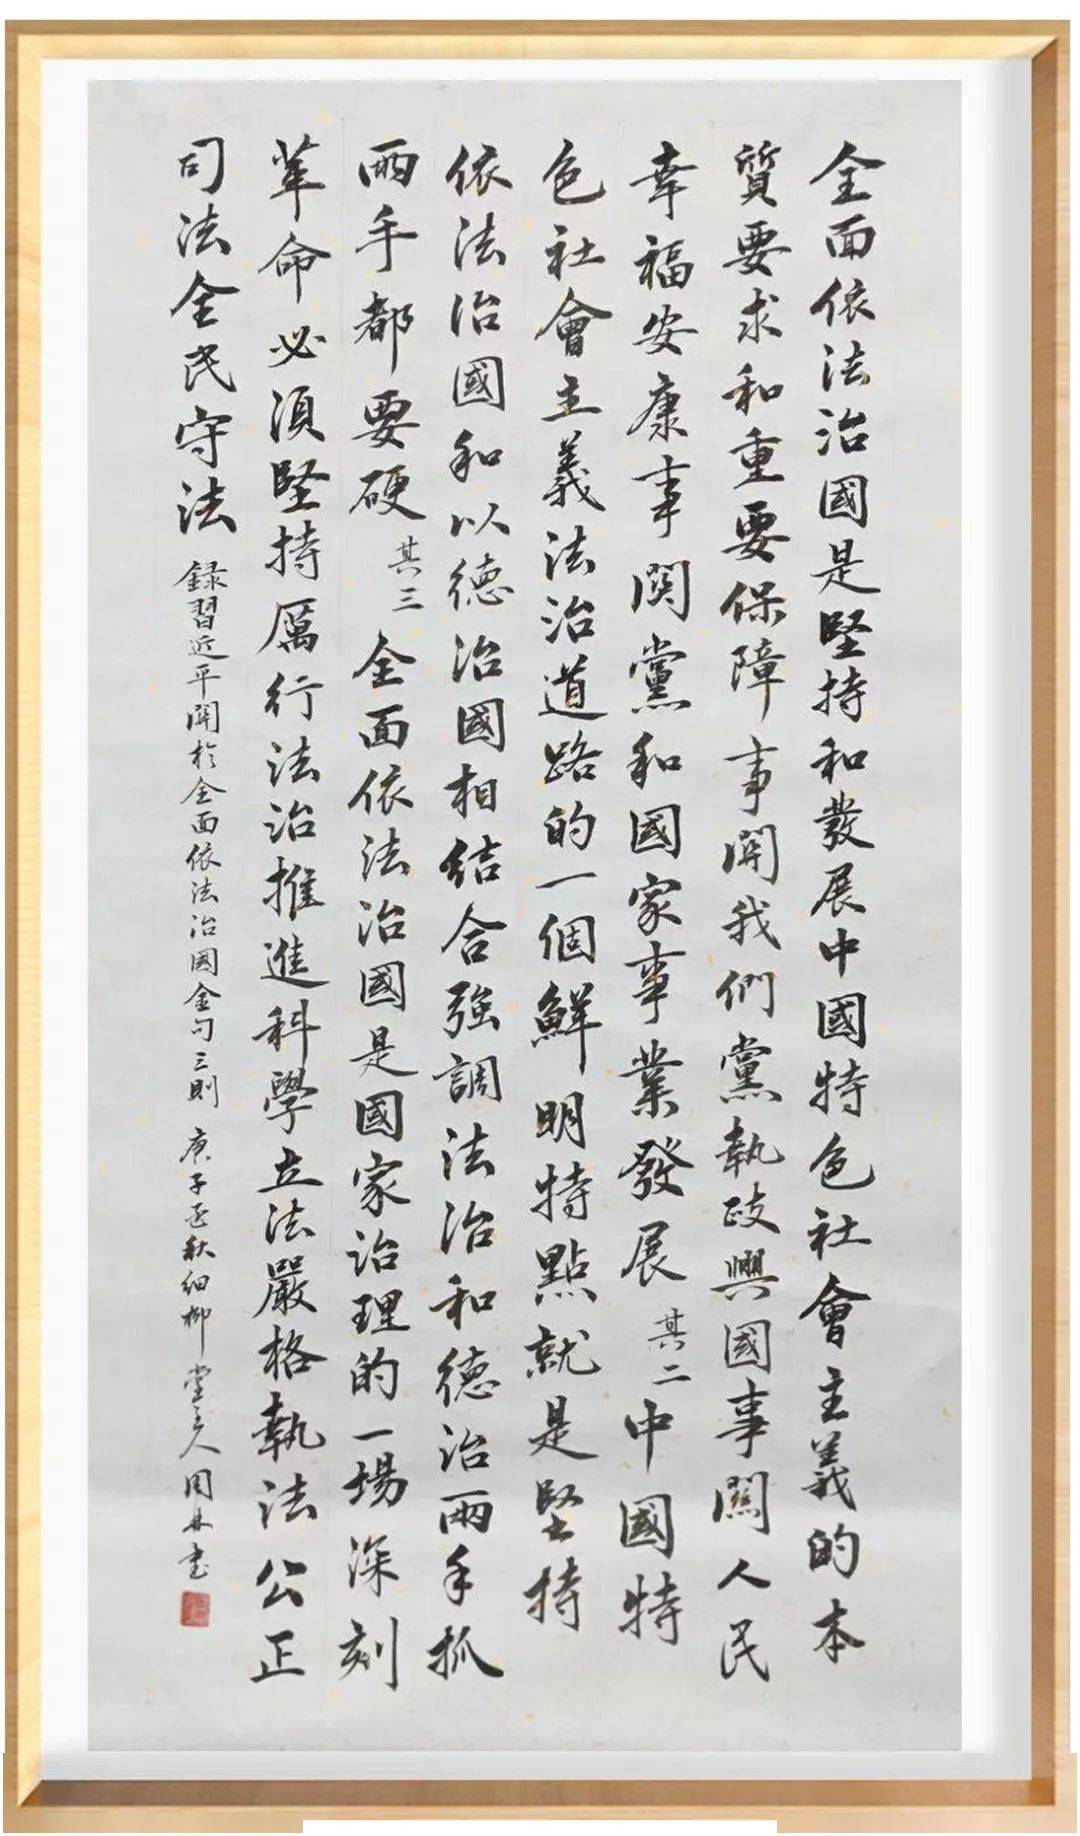 全面依法治國是堅持和發展中國特色社會主義的本
質要求和重要保障事關我們黨執政興國事關人民
幸福安康事関黨和國家事業發展其二中國特
色社會主義法治道路的一個鮮明特點就是堅持
依法治國和以德治國相結合強調法治和德治兩手抓
兩手都要硬其三全面依法治國是國家治理的一場深刻
革命必須堅持厲行法治推進科學立法嚴格執法公正
司法全民守法
録習近平關於全面依法治國金句三則 庚子孟秋細柳堂主人周林書